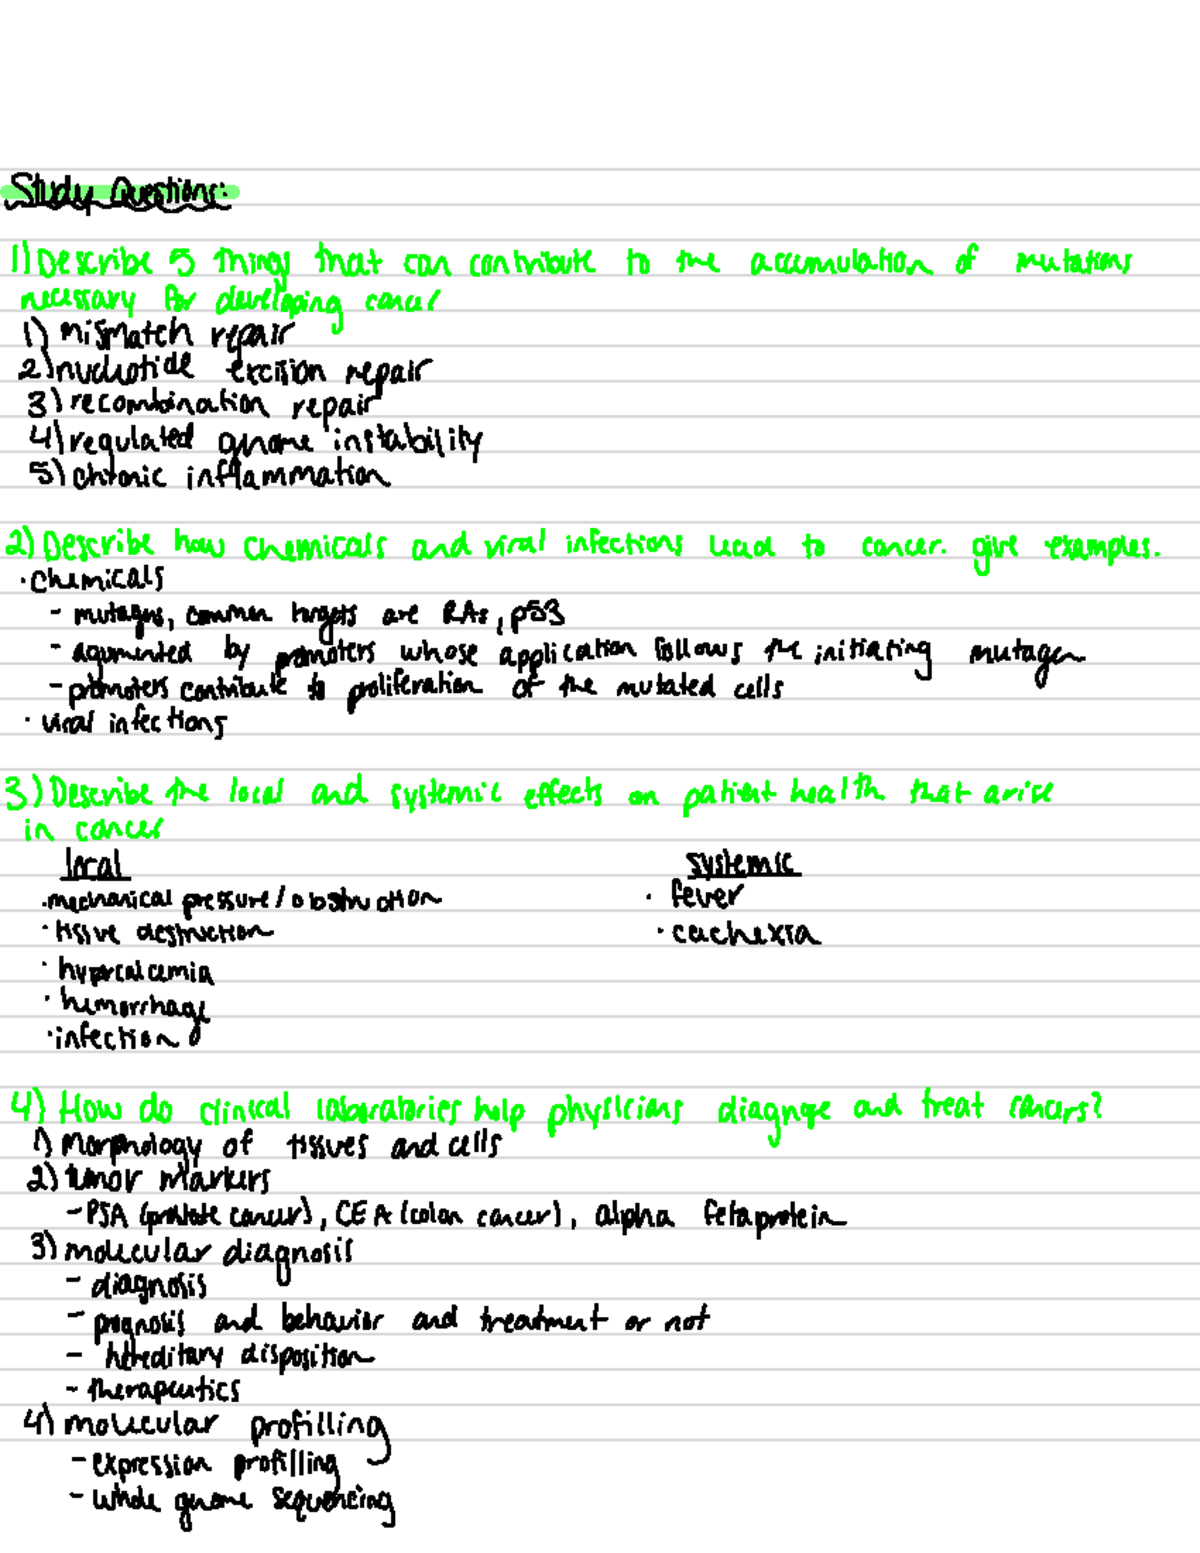 Study Questions:
1) Describe 5 things that can contribute to the accumulation of mutations
necessary for developing cancer
1) mismatch repair
2) nucleotide excision repair
3) recombination repair
4) regulated genome instability
5) chronic inflammation
2) Describe how chemicals and viral infections lead to cancer. give examples.
· chemicals
- mutagens, common targets are RAs, p53
- agumented by promoters whose application follows the initiating mutagen
- promoters contribute to proliferation of the mutated cells
· viral infections
3) Describe the local and systemic effects on patient health that arise
in cancer
local systemic
· mechanical pressure/obstruction · fever
· tissue destruction · cachexia
· hypercalcemia
· hemorrhage
· infection
4) How do clinical laboratories help physicians diagnose and treat cancers?
1) morphology of tissues and cells
2) tumor markers
- PSA (prostate cancer), CEA (colon cancer), alpha fetaprotein
3) molecular diagnosis
- diagnosis
- prognosis and behavior and treatment or not
- hereditary disposition
- therapeutics
4) molecular profilling
- expression profilling
- whole genome sequencing